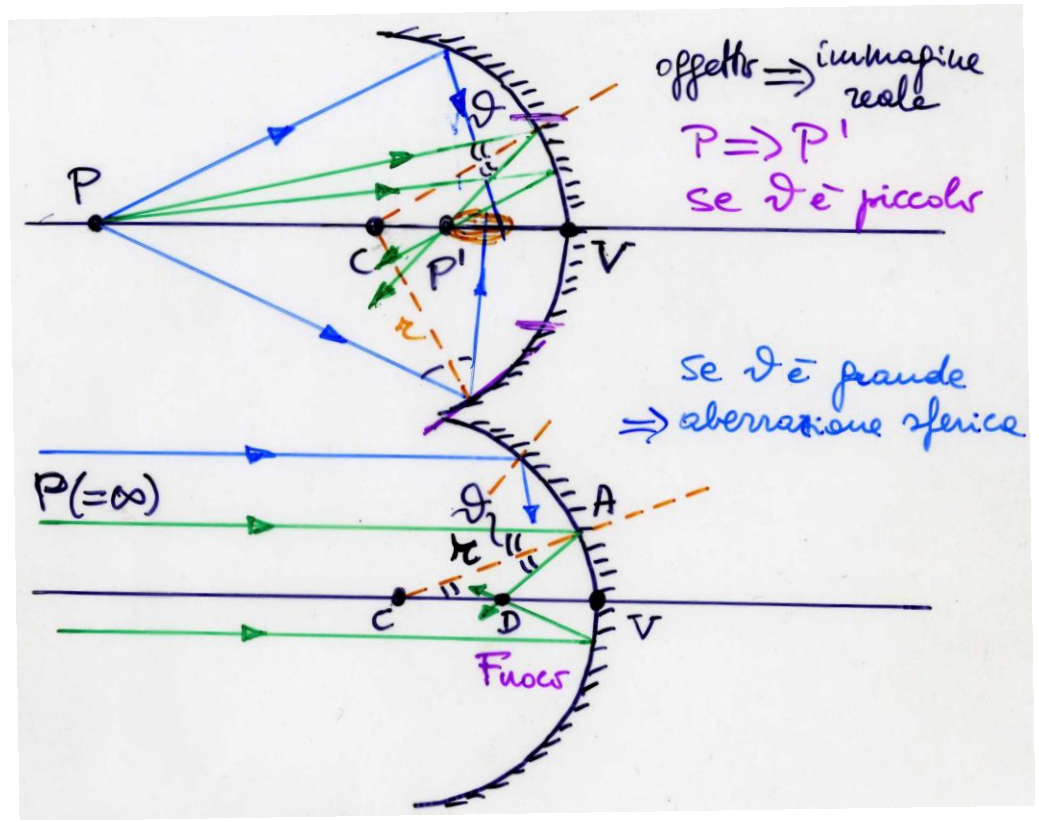 oggetto ⇒ immagine
reale
P ⇒ P'
se ϑ è piccolo
P
ϑ
C
P'
V
r
se ϑ è grande
⇒ aberrazione sferica
P(=∞)
ϑ
A
r
C
D
V
Fuoco